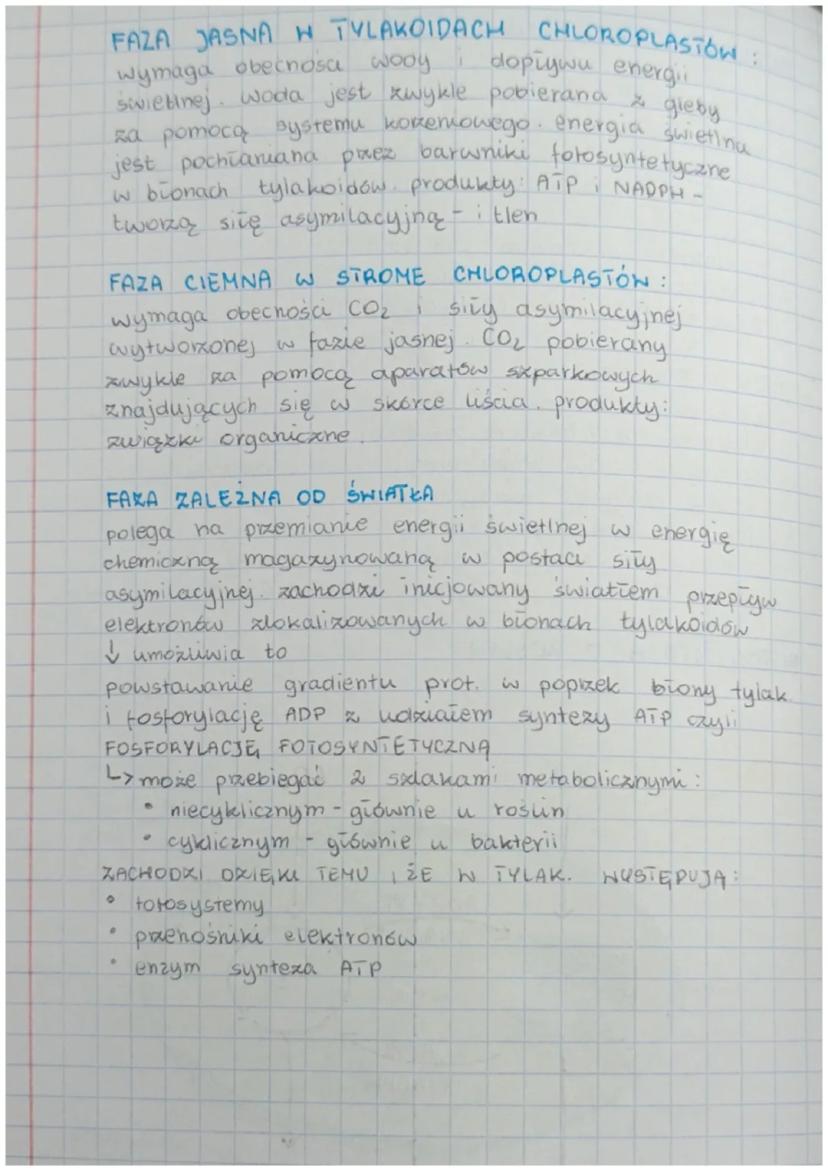 FAZA JASNA W TYLAKOIDACH CHLOROPLASTÓW:
wymaga obecności wody i dopływu energii
świetlnej. woda jest zwykle pobierana z gleby
za pomocą systemu korzeniowego. energia świetlna
jest pochłaniana przez barwniki fotosyntetyczne
w błonach tylakoidów. produkty: ATP i NADPH -
tworzą siłę asymilacyjną - i tlen
FAZA CIEMNA W STROMIE CHLOROPLASTÓW:
wymaga obecności CO₂ i siły asymilacyjnej
wytworzonej w fazie jasnej. CO₂ pobierany
zwykle za pomocą aparatów szparkowych
znajdujących się w skórce liścia. produkty:
związki organiczne.
FAZA ZALEŻNA OD ŚWIATŁA
polega na przemianie energii świetlnej w energię
chemiczną magazynowaną w postaci siły
asymilacyjnej. zachodzi inicjowany światłem przepływ
elektronów zlokalizowanych w błonach tylakoidów
↓ umożliwia to
powstawanie gradientu prot. w poprzek błony tylak.
i fosforylację ADP z udziałem syntezy ATP czyli
FOSFORYLACJĘ FOTOSYNTETYCZNĄ
↳ może przebiegać 2 szlakami metabolicznymi:
• niecyklicznym - głównie u roślin
• cyklicznym - głównie u bakterii
ZACHODZI DZIĘKI TEMU, ŻE W TYLAK. WYSTĘPUJĄ:
• fotosystemy
• przenośniki elektronów
• enzym synteza ATP